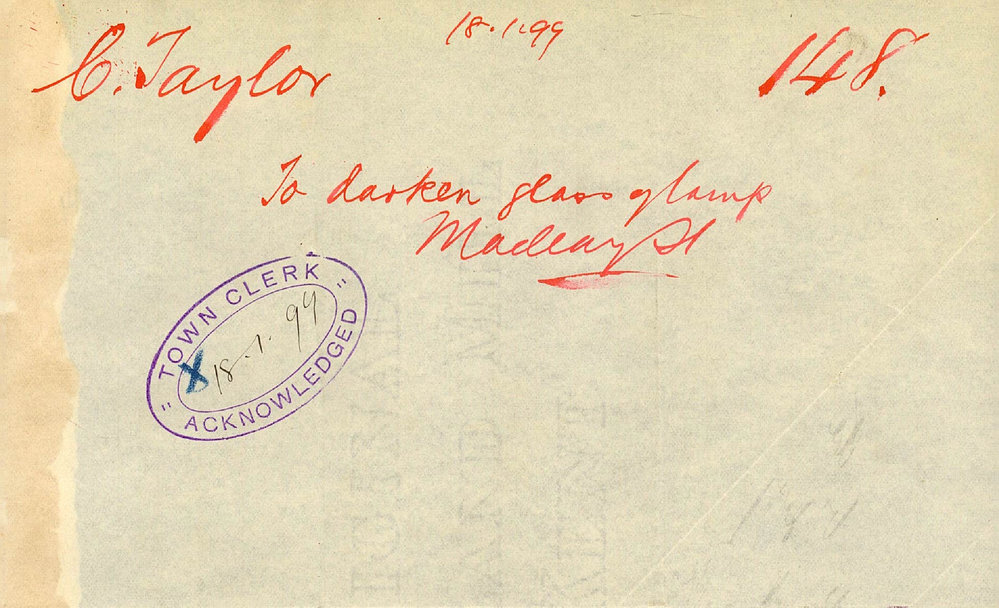 18.1.99
C. Taylor
148.
To darken glass of lamp
Macleay St
TOWN CLERK
X 18.1.99
ACKNOWLEDGED